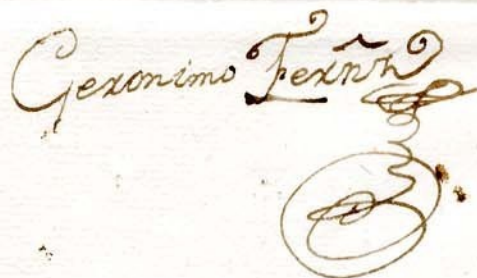 Geronimo Ferñz